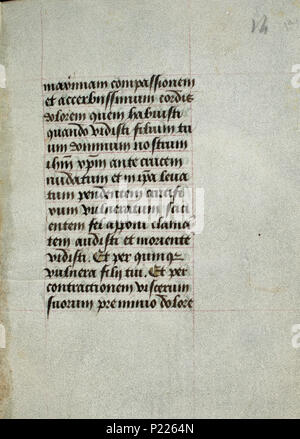 14
maximam compassionem
et acerbissimum cordis
dolorem quem habuisti
quando vidisti filium tu
um dominum nostrum
ihm xpm ante crucem
nudatum et in ipa leva
tum pendentem crucifi
xum vulneratum siti
entem fel apponi clama
tem audisti et moriente
vidisti. Et per quinqz
vulnera filii tui. Et per
contractionem viscerum
suorum pre nimio dolore
alamy
P2264N